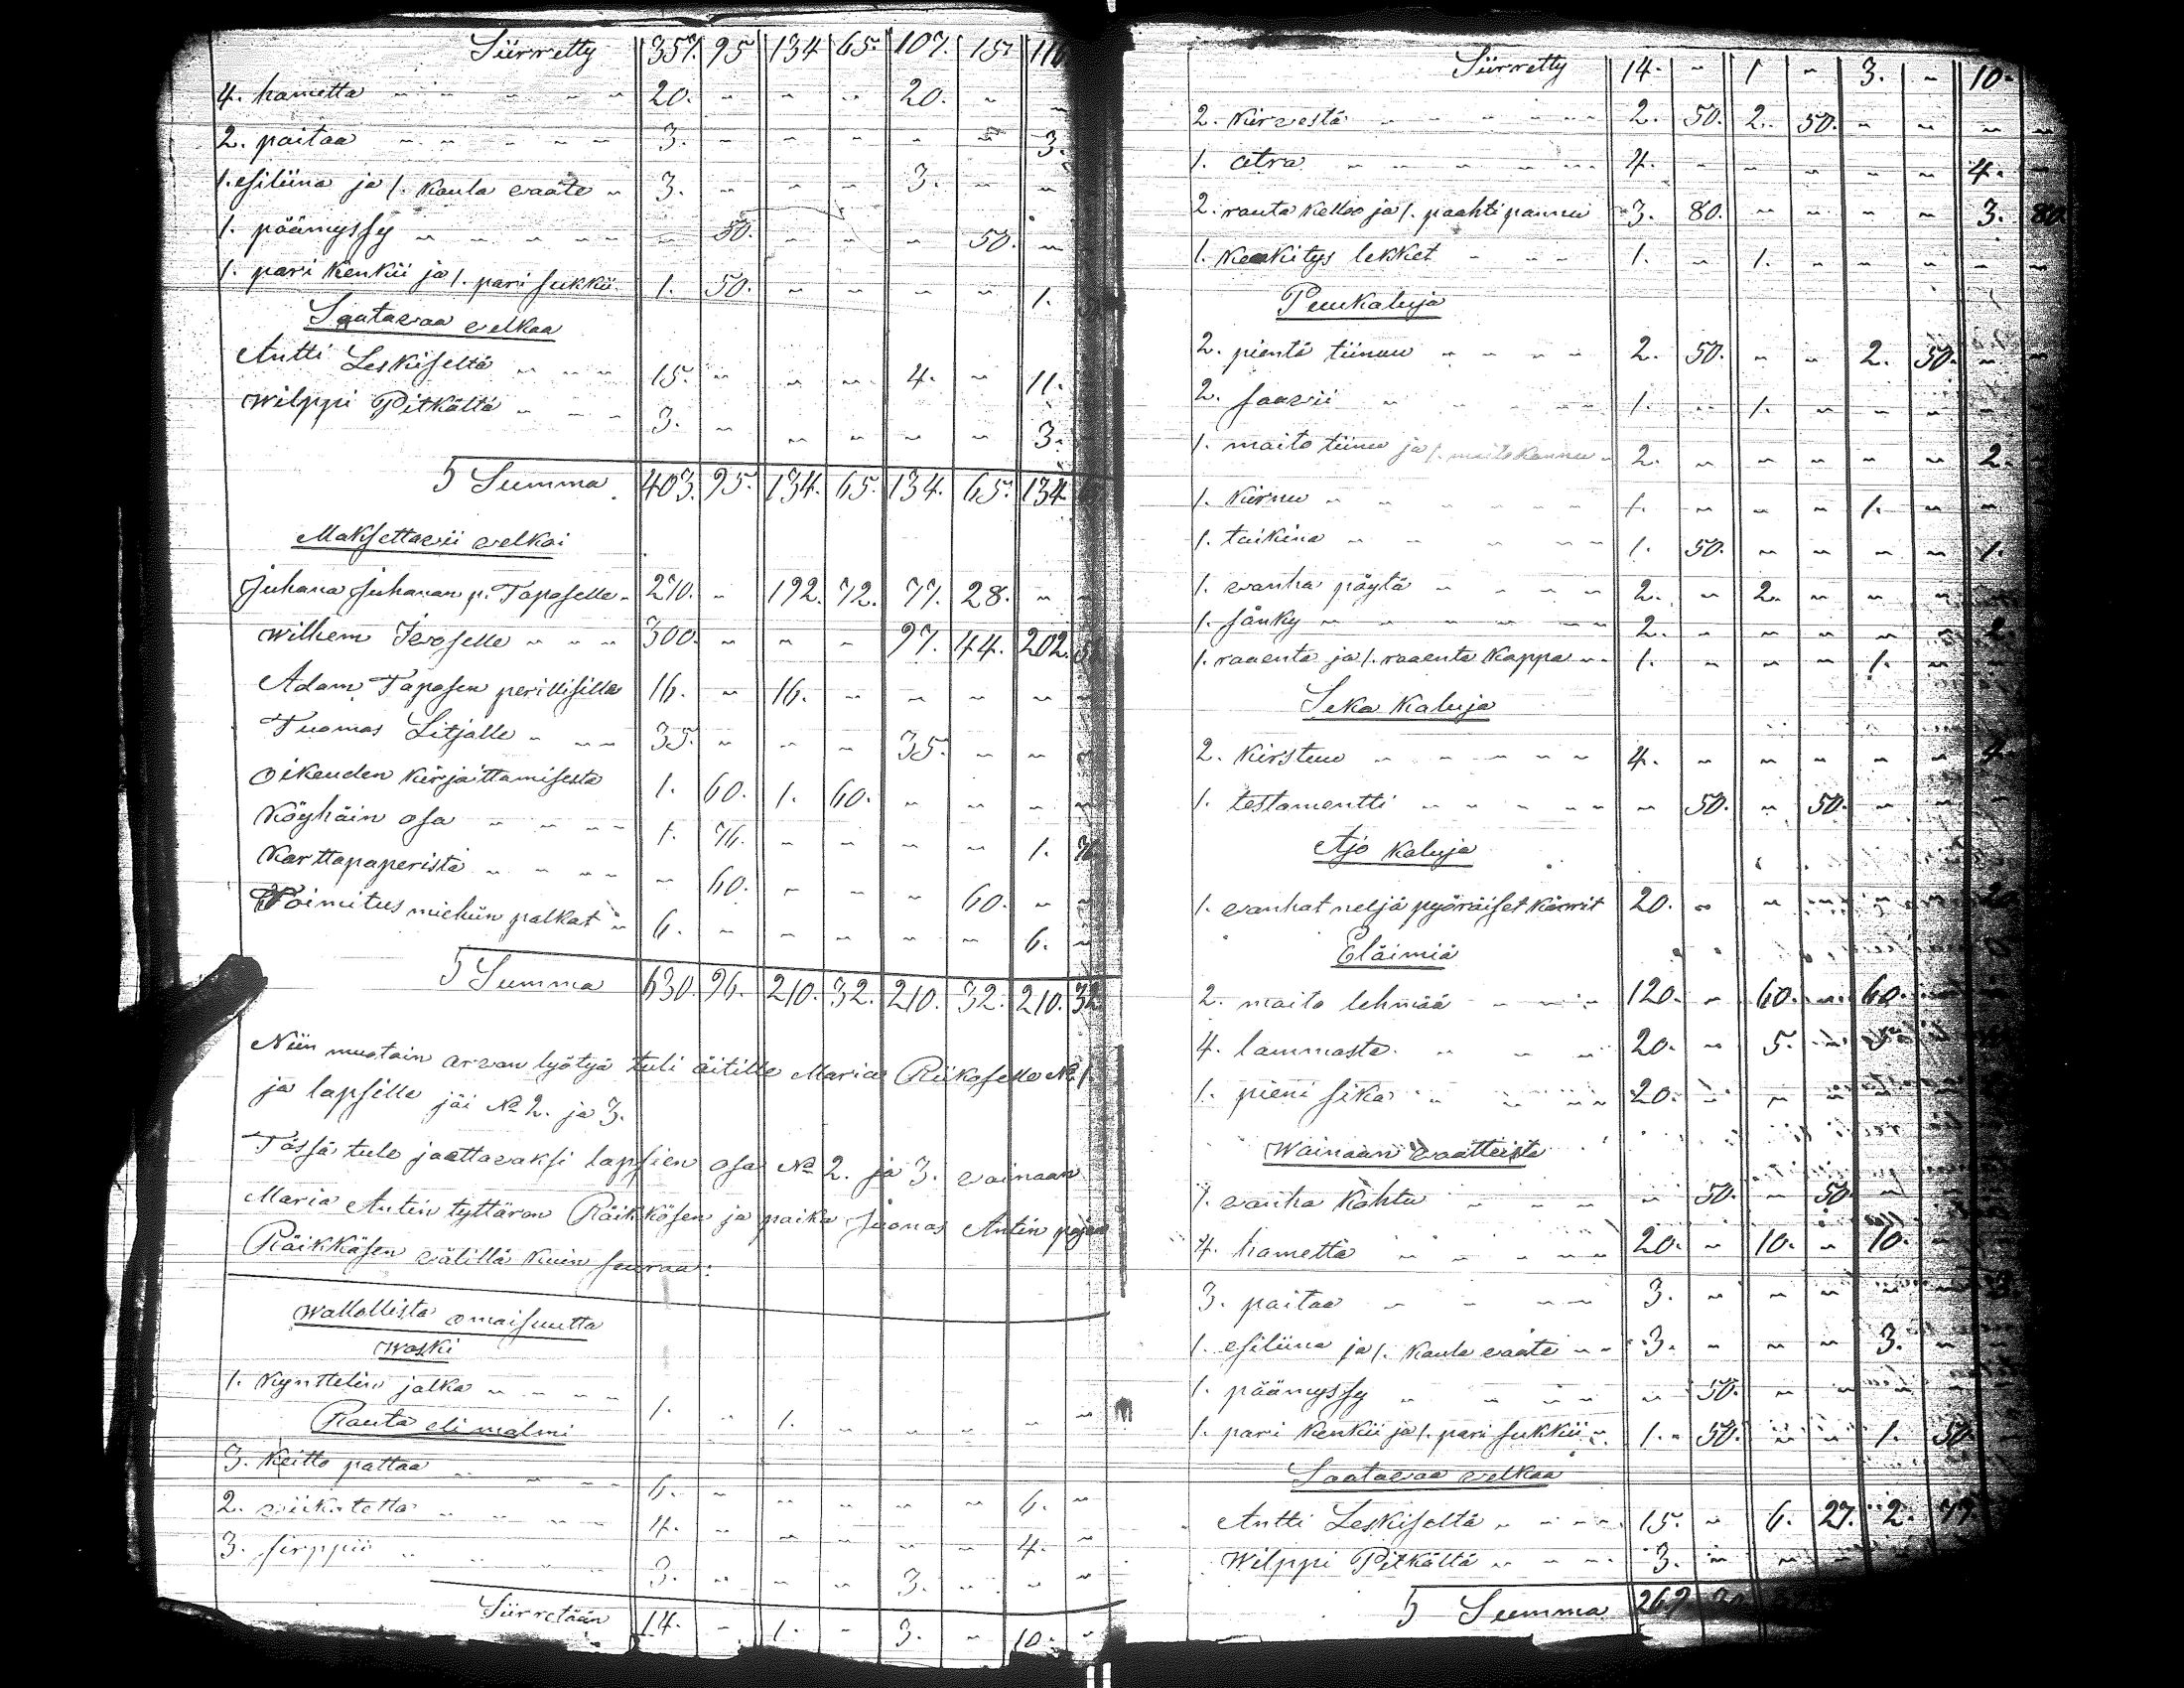 Siirretty 357. 95 134 65. 107. 15. 116
4. hametta 20. " " " 20. " " "
2. paitaa 3. " " " " " 3.
1. esiliina ja 1. kaula vaate 3. " " " 3. " "
1. päämyssy " 50. " " " 50. "
1. pari kenkii ja 1. pari sukkii 1. 50. " " " " 1.
Saatavaa velkaa
Antti Leskiseltä 15. " " " 4. " 11.
Wilppi Pitkältä 3. " " " " " 3.
Summa 403. 95. 134. 65. 134. 65. 134
Maksettavii velkoi
Juhana Juhanan p. Taposelle 270. " 192. 72. 77. 28. " "
Wilhem Ivoselle 300. " " " 97. 44. 202.
Adam Taposen perillisille 16. " 16. " " " " "
Tuomas Litjalle 35. " " " 35. " " "
Oikeuden kirjoittamisesta 1. 60. 1. 60. " " " "
Köyhäin osa 1. 76. " " " " 1. 76
Karttapaperista " 60. " " " 60. " "
Toimitus miehiin palkat 6. " " " " " 6. "
Summa 630. 96. 210. 32. 210. 32. 210. 32
Niin muotoin arvan lyötyä tuli äitille Maria Riikoselle No 1.
ja lapsille jäi No 2. ja 3.
Tässä tulo jaettavaksi lapsien osa No 2. ja 3. vainaan
Maria Antin tyttären Räikkösen ja poika Juonas Antin pojan
Räikkäsen välillä kuin seuraa:
Wallollista omaisuutta
Waski
1. Kynttelin jalka 1. " 1. " " " " "
Rauta eli malmi
3. Keitto pattaa 6. " " " " " 6. "
2. viikatetta 4. " " " " " 4. "
3. sirppii 3. " " " 3. " " "
Siirretään 14. " 1. " 3. " 10. "
Siirretty 14. " 1 " 3. " 10.
2. Kirvestä 2. 50. 2. 50. " " " "
1. atra 4. " " " " " 4. "
2. rauta kelloo ja 1. paahti pannu 3. 80. " " " " 3. 80.
1. lekket 1. " 1. " " " " "
Puukaluja
2. pientä tiinuu 2. 50. " " 2. 50. " "
2. saavii 1. " 1. " " " " "
1. maito tiinu ja 1. maito kannu 2. " " " " " 2. "
1. Kirnu 1. " " " 1. " "
1. taikina 1. 50. " " " " 1.
1. vanha pöytä 2. " 2. " " "
1. sänky 2. " " " " " 2.
1. raaenta ja 1. raaenta kappa 1. " " " 1. " "
Seka kaluja
2. Kirstuu 4. " " " " " 4.
1. testamentti " 50. " 50. " " "
Ajo kaluja
1. vanhat neljä pyöräiset kärrit 20. " " " " " 20
Eläimiä
2. maito lehmää 120. " 60. " 60.
4. lammasta 20. " 5. " 5
1. pieni sika 20. " " " "
Wainaan vaatteista
1. vanha kohtu " 50. " 50 "
4. hametta 20. " 10. " 10. "
3. paitaa 3. " " " " " 3.
1. esiliina ja 1. kaula vaate 3. " " " 3. "
1. päämyssy " 50. " "
1. pari kenkii ja 1. pari sukkii 1. 50. " " 1. 50
Saatavaa velkaa
Antti Leskiseltä 15. " 6. 27. 2. 77.
Wilppi Pitkältä 3. " "
Summa 269